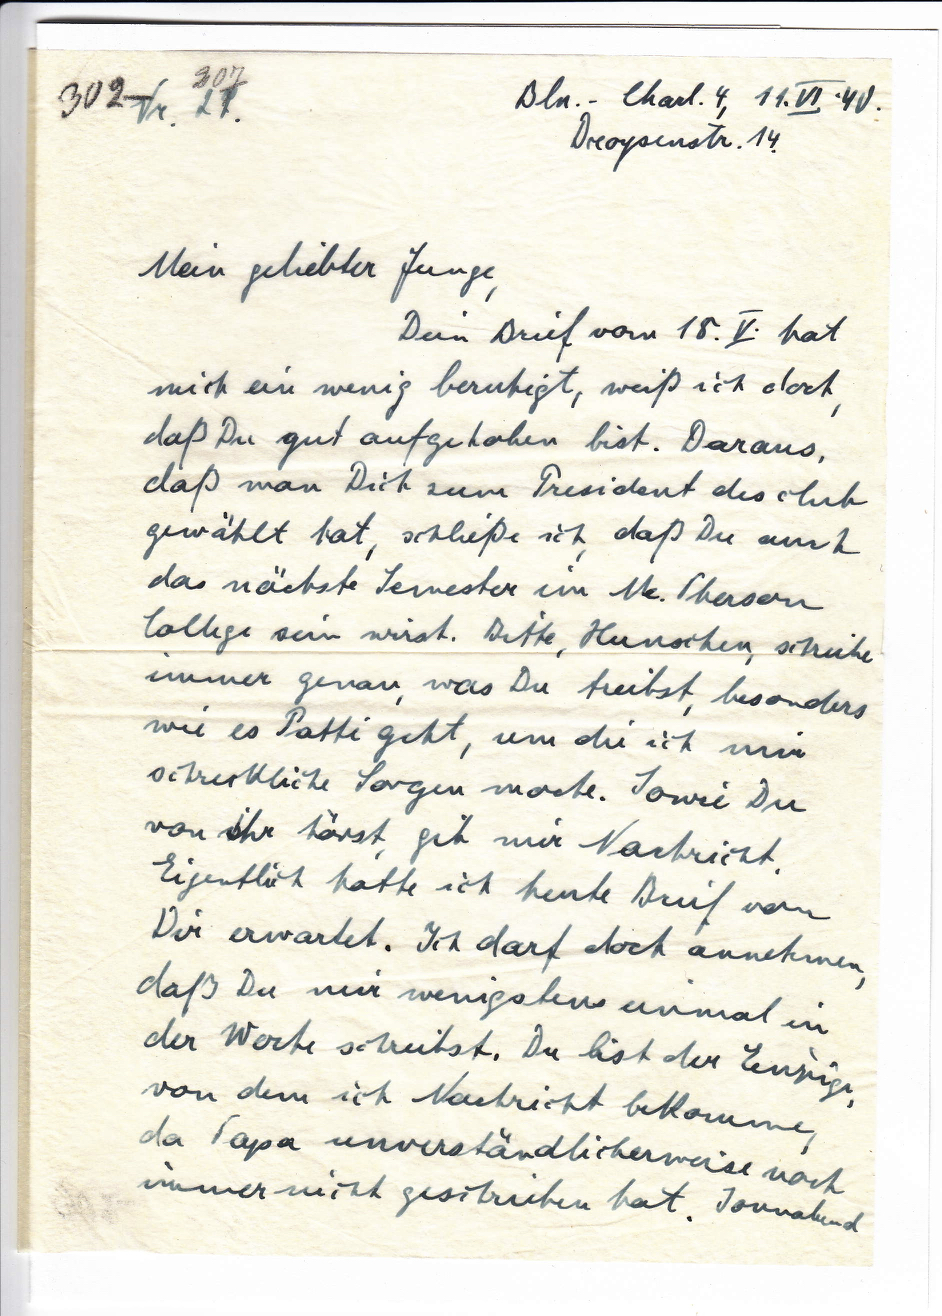 302 307
Nr. 21.
Bln.- Charl. 4, 11.VI.40.
Droysenstr. 14.
Mein geliebter Junge,
Dein Brief vom 18. V. hat
mich ein wenig beruhigt, weiß ich doch,
daß Du gut aufgehoben bist. Daraus,
daß man Dich zum President des club
gewählt hat, schließe ich, daß Du auch
das nächste Semester im Mc. Pherson
College sein wirst. Bitte, Hunschen, schreibe
immer genau, was Du treibst, besonders
wie es Patti geht, um die ich mir
schreckliche Sorgen mache. Sowie Du
von ihr hörst, gib mir Nachricht.
Eigentlich hatte ich heute Brief von
Dir erwartet. Ich darf doch annehmen,
daß Du mir wenigstens einmal in
der Woche schreibst. Du bist der Einzige,
von dem ich Nachricht bekomme,
da Papa unverständlicherweise noch
immer nicht geschrieben hat. Sonnabend